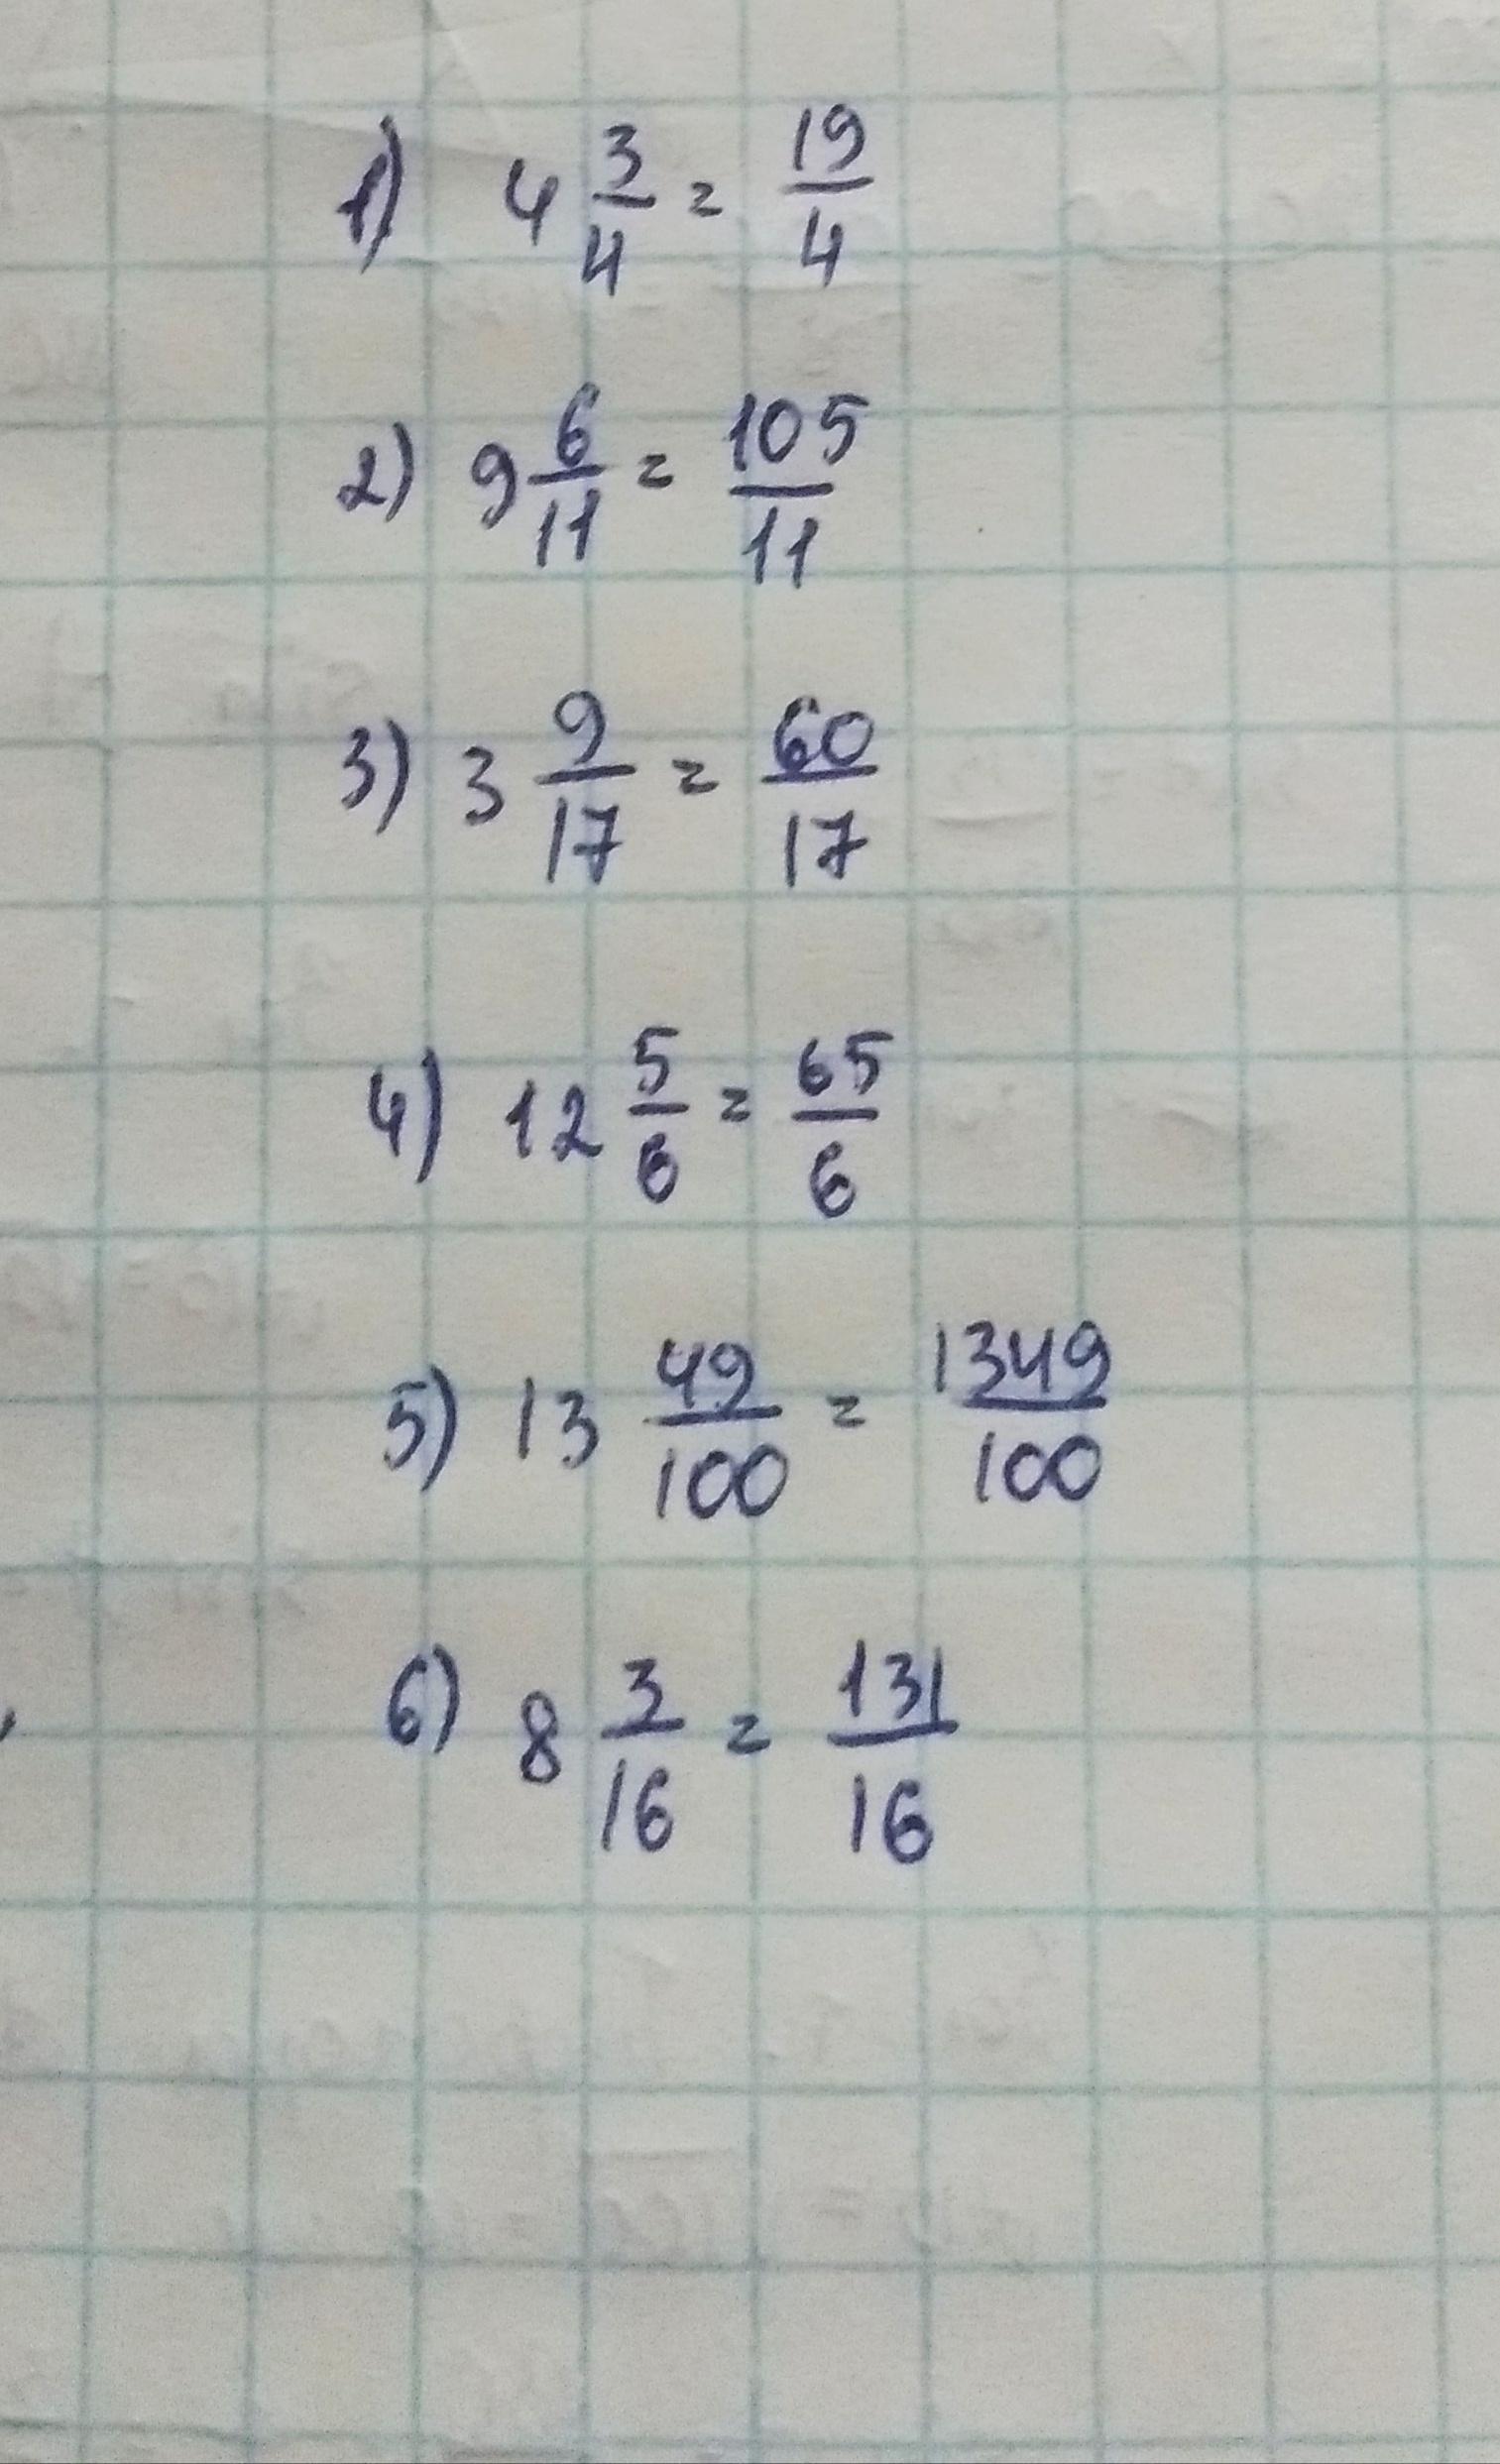 1) 4 3/4 = 19/4
2) 9 6/11 = 105/11
3) 3 9/17 = 60/17
4) 12 5/6 = 65/6
5) 13 49/100 = 1349/100
6) 8 3/16 = 131/16